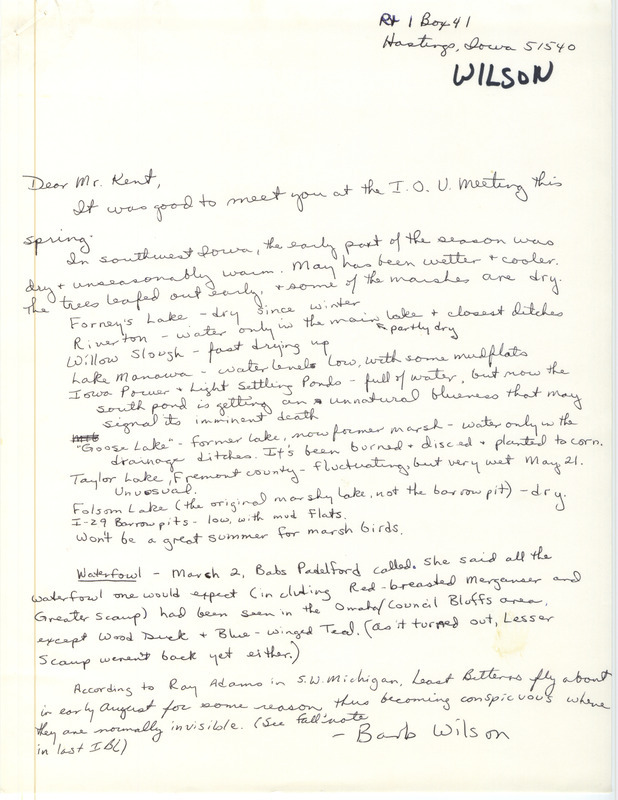 Rt 1 Box 41
Hastings, Iowa 51540
WILSON
Dear Mr. Kent,
It was good to meet you at the I.O.U. Meeting this
spring.
In southwest Iowa, the early part of the season was
dry + unseasonably warm. May has been wetter + cooler.
The trees leafed out early, + some of the marshes are dry.
Forney's Lake - dry since winter
Riverton - water only in the main lake + closest ditches
partly dry
Willow Slough - fast drying up
Lake Manawa - water levels low, with some mudflats
Iowa Power + Light Settling Ponds - full of water, but now the
south pond is getting an unnatural blueness that may
signal its imminent death
"Goose Lake" - former lake, now former marsh - water only in the
drainage ditches. It's been burned + disced + planted to corn.
Taylor Lake, Fremont county - fluctuating, but very wet May 21.
Unusual.
Folsom Lake (the original marshy lake, not the barrow pit) - dry.
I-29 Barrow pits - low, with mud flats.
Won't be a great summer for marsh birds.
Waterfowl - March 2, Babs Padelford called. She said all the
waterfowl one would expect (including Red-breasted Merganser and
Greater Scaup) had been seen in the Omaha/Council Bluffs area,
except Wood Duck + Blue-winged Teal. (as it turned out, Lesser
Scaup weren't back yet either.)
According to Ray Adams in S.W. Michigan, Least Bitterns fly about
in early August for some reason, thus becoming conspicuous where
they are normally invisible. (See fall note
in last IBL)
- Barb Wilson